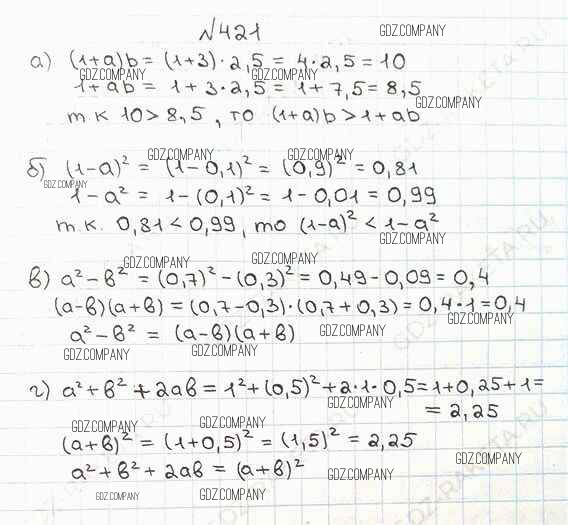 №421
GDZ.COMPANY
а) (1+a)b = (1+3)·2,5 = 4·2,5 = 10
GDZ.COMPANY GDZ.COMPANY
1+ab = 1+3·2,5 = 1+7,5 = 8,5
GDZ.COMPANY
т к 10 > 8,5, то (1+a)b > 1+ab
GDZ.COMPANY GDZ.COMPANY
б) (1-a)² = (1-0,1)² = (0,9)² = 0,81
GDZ.COMPANY
1-a² = 1-(0,1)² = 1-0,01 = 0,99
т.к. 0,81 < 0,99, то (1-a)² < 1-a²
GDZ.COMPANY
GDZ.COMPANY GDZ.COMPANY
в) a²-в² = (0,7)²-(0,3)² = 0,49-0,09 = 0,4
(a-в)(a+в) = (0,7-0,3)·(0,7+0,3) = 0,4·1 = 0,4
GDZ.COMPANY
a²-в² = (a-в)(a+в)
GDZ.COMPANY
GDZ.COMPANY GDZ.COMPANY
г) a²+в²+2aв = 1²+(0,5)²+2·1·0,5 = 1+0,25+1=
GDZ.COMPANY
= 2,25
GDZ.COMPANY GDZ.COMPANY
(a+в)² = (1+0,5)² = (1,5)² = 2,25
GDZ.COMPANY
a²+в²+2aв = (a+в)²
GDZ.COMPANY
GDZ.COMPANY GDZ.COMPANY